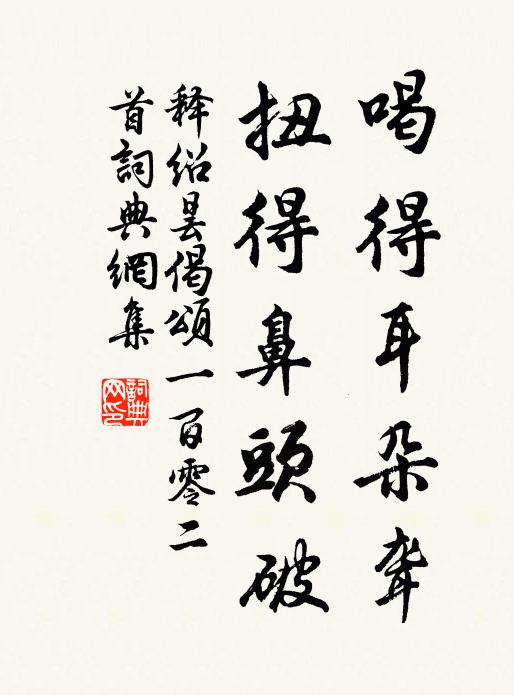 喝得耳朵聋
扭得鼻頭破
释紹昙偈頌一百零二
首詞典網集
詞典网印